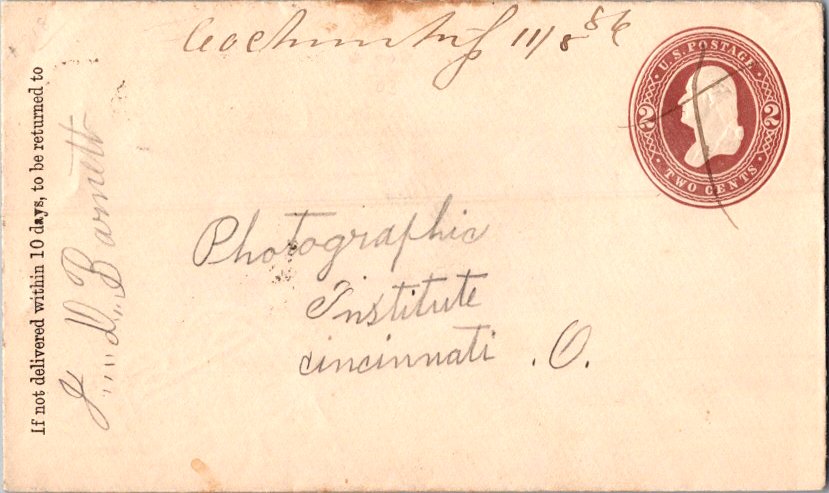 11/8 86
U.S. POSTAGE
2 2
TWO CENTS
If not delivered within 10 days, to be returned to
J. D. Barnett
Photographic
Institute
cincinnati . O.